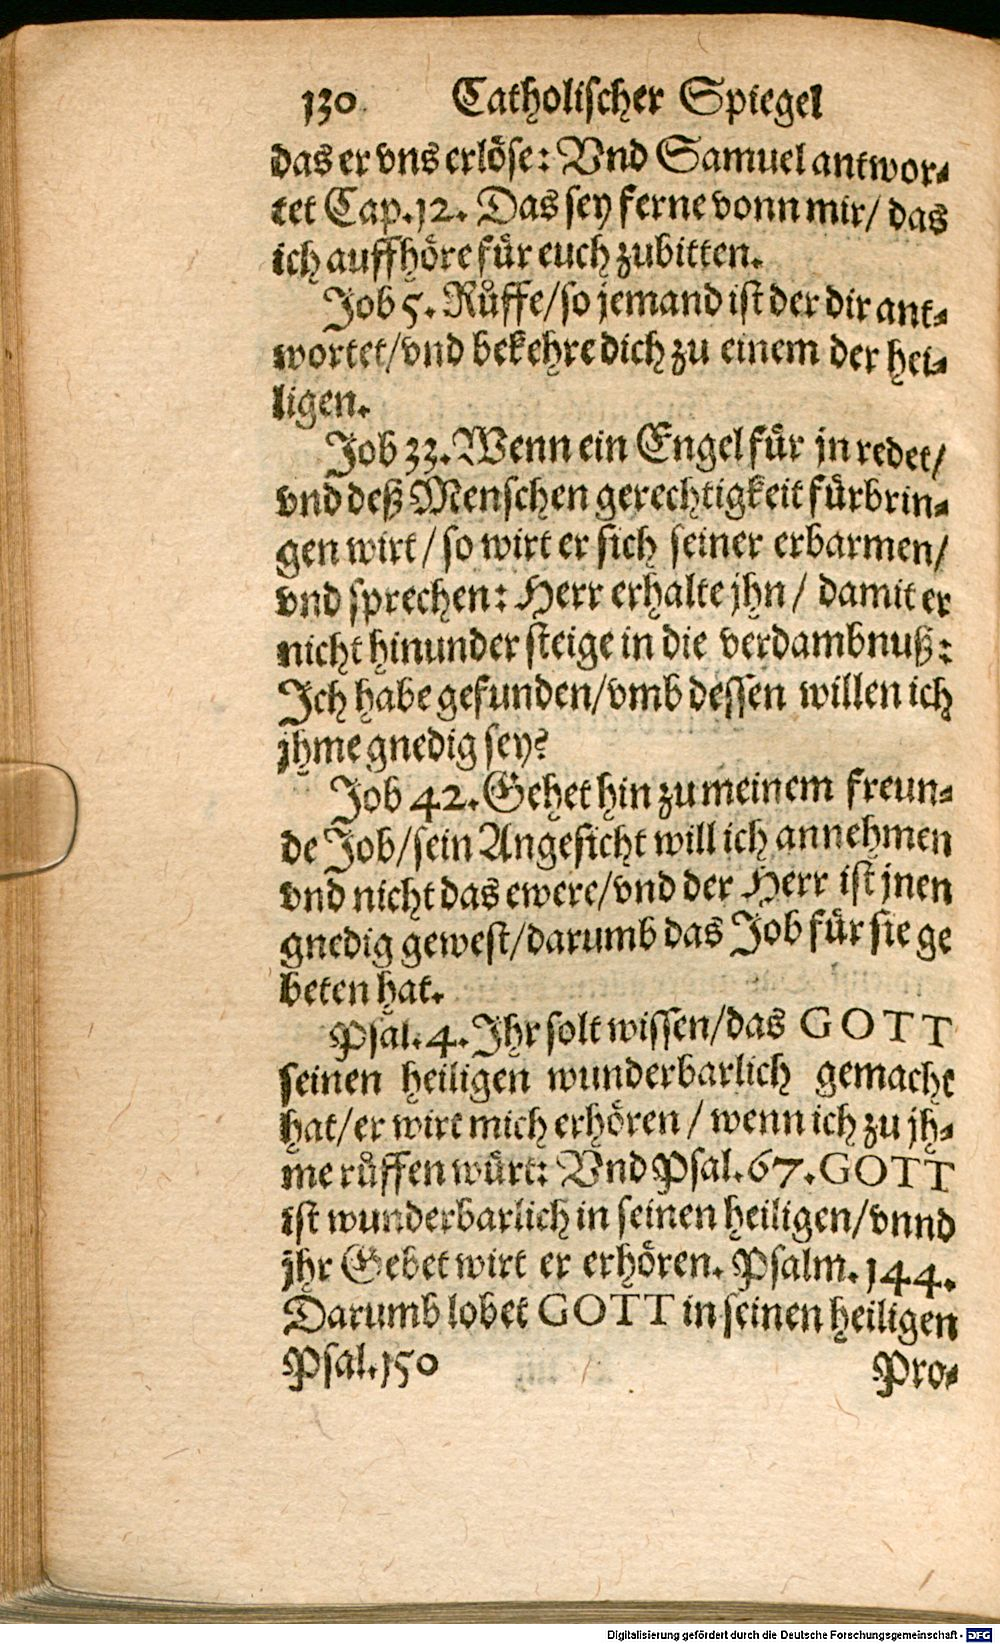 130 Catholischer Spiegel
das er vns erlöse: Vnd Samuel antwor-
tet Cap. 12. Das sey ferne vonn mir/ das
ich auffhöre für euch zubitten.
Job 5. Růffe/so jemand ist der dir ant-
wortet/vnd bekehre dich zu einem der hei-
ligen.
Job 33. Wenn ein Engel für jn redet/
vnd deß Menschen gerechtigkeit fürbrin-
gen wirt/ so wirt er sich seiner erbarmen/
vnd sprechen: Herr erhalte jhn/ damit er
nicht hinunder steige in die verdambnuß:
Ich habe gefunden/vmb dessen willen ich
jhme gnedig sey?
Job 42. Gehet hin zu meinem freun-
de Job/sein Angesicht will ich annehmen
vnd nicht das ewere/vnd der Herr ist jnen
gnedig gewest/darumb das Job für sie ge
beten hat.
Psal. 4. Ihr solt wissen/das GOTT
seinen heiligen wunderbarlich gemacht
hat/er wirt mich erhören/ wenn ich zu jh-
me růffen würt: Vnd Psal. 67. GOTT
ist wunderbarlich in seinen heiligen/vnnd
jhr Gebet wirt er erhören. Psalm. 144.
Darumb lobet GOTT in seinen heiligen
Psal. 150 Pro-
Digitalisierung gefördert durch die Deutsche Forschungsgemeinschaft - DFG